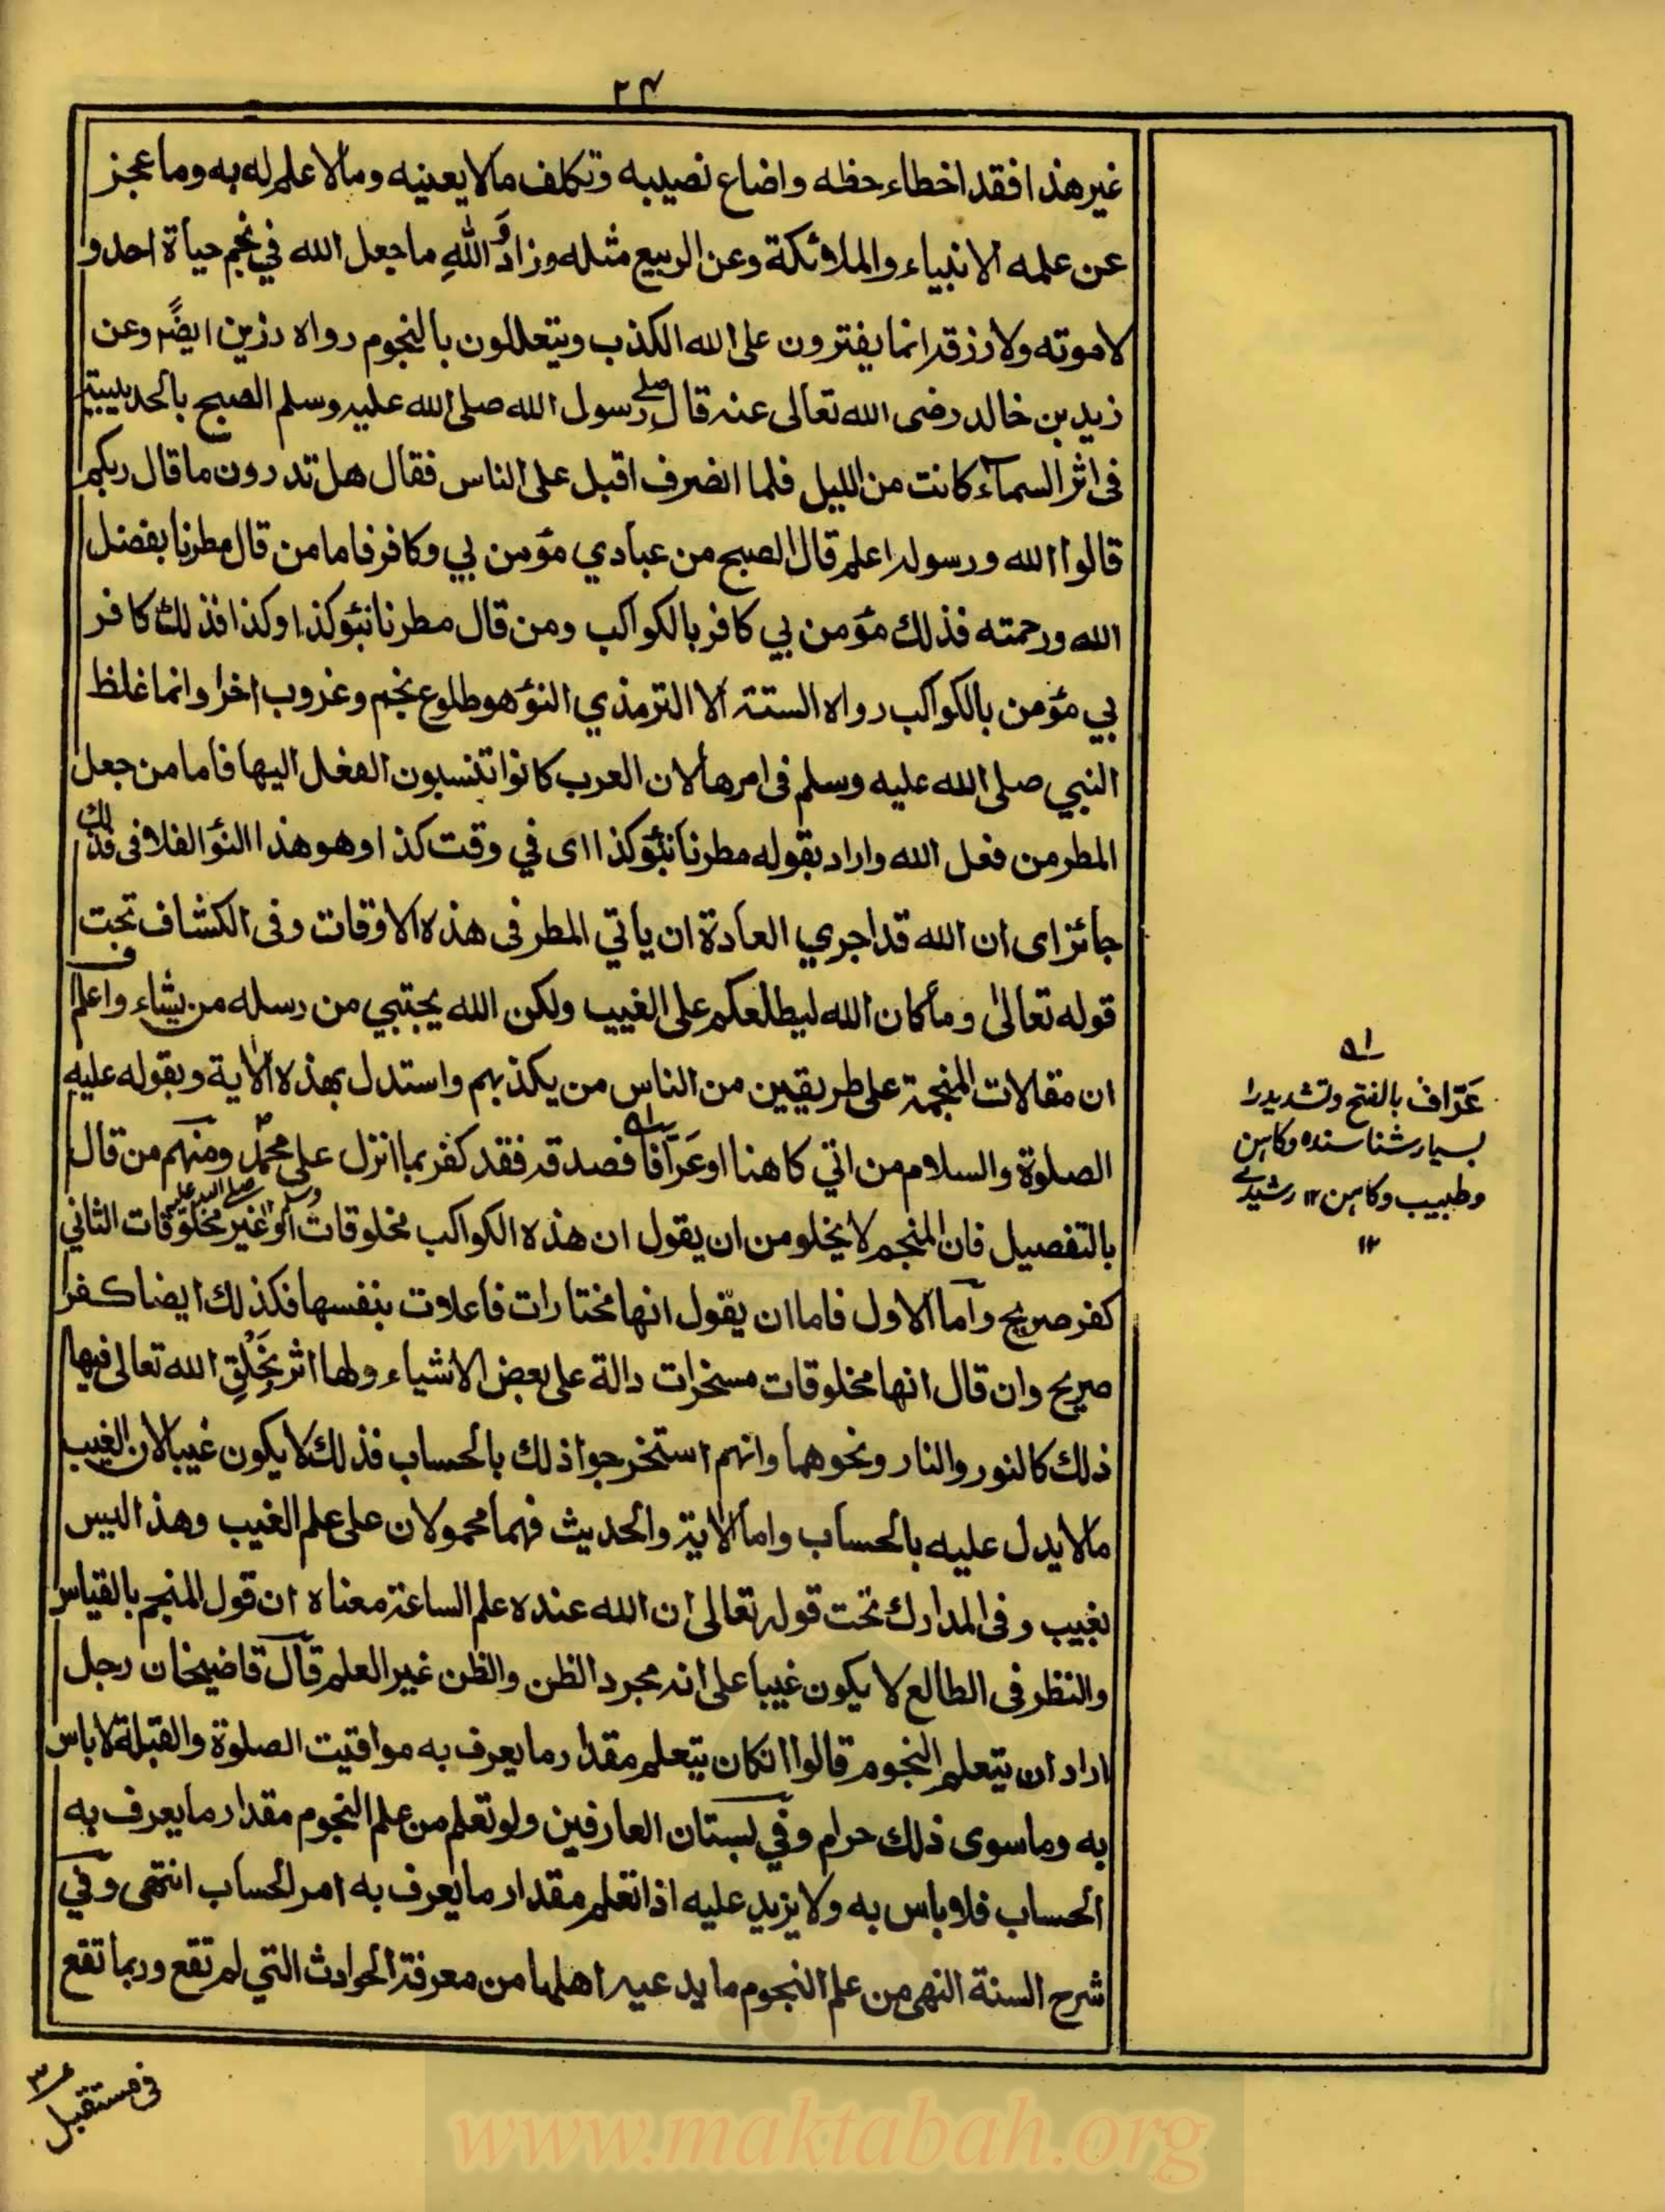 ٢٤
غير هذا فقد اخطاء حظه واضاع نصيبه وتكلف مالا يعنيه ومالا علم له به وما عجز
عن علمه الانبياء والملائكة وعن الربيع مثله وزاد وَاللّٰهِ ما جعل الله في نجم حياة احد و
لا موته ولا رزقه انما يفترون على الله الكذب ويتعللون بالنجوم رواه رزين ايضًا وعن
زيد بن خالد رضى الله تعالى عنه قال صلے رسول الله صلى الله عليه وسلم الصبح بالحديبية
فى اثر السماء كانت من الليل فلما انصرف اقبل على الناس فقال هل تدرون ما قال ربكم
قالوا الله ورسوله اعلم قال اصبح من عبادي مؤمن بي وكافر فاما من قال مطرنا بفضل
الله ورحمته فذلك مؤمن بي كافر بالكواكب ومن قال مطرنا بنوء كذا وكذا فذلك كافر
بي مؤمن بالكواكب رواه الستة الا الترمذي النوء هو طلوع نجم وغروب اخر وانما غلظ
النبي صلى الله عليه وسلم فى امرها لان العرب كانوا تنسبون الفعل اليها فاما من جعل
المطر من فعل الله واراد بقوله مطرنا بنوء كذا اى في وقت كذا وهو هذا النوء الفلانى فذلك
جائز اى ان الله قد اجري العادة ان ياتي المطر فى هذه الاوقات وفى الكشاف تحت
قوله تعالىٰ وما كان الله ليطلعكم على الغيب ولكن الله يجتبي من رسله من يشاء واعلم
ان مقالات المنجمة على طريقين من الناس من يكذبهم واستدل بهذه الاٰية وبقوله عليه
الصلوة والسلام من اتي كاهنا او عَرّافًا فصدقه فقد كفر بما انزل على محمد صلى الله عليه وسلم ومنهم من قال
بالتفصيل فان المنجم لا يخلو من ان يقول ان هذه الكواكب مخلوقات او غير مخلوقات الثاني
كفر صريح واما الاول فاما ان يقول انها مختارات فاعلات بنفسها فكذلك ايضا كفر
صريح وان قال انها مخلوقات مسخرات دالة على بعض الاشياء ولها اثر بِخَلْقِ الله تعالى فيها
ذلك كالنور والنار ونحوهما وانهم استخرجوا ذلك بالحساب فذلك لا يكون غيبا لان الغيب
مالا يدل عليه بالحساب واما الاٰية والحديث فهما محمولان على علم الغيب وهذا ليس
بغيب وفى المدارك تحت قوله تعالى ان الله عنده علم الساعة معناه ان قول المنجم بالقياس
والنظر فى الطالع لا يكون غيبا على انه مجرد الظن والظن غير العلم قال قاضيخان رجل
اراد ان يتعلم النجوم قالوا انكان يتعلم مقدار ما يعرف به مواقيت الصلوة والقبلة لا باس
به وما سوى ذلك حرام وفي بستان العارفين ولو تعلم من علم النجوم مقدار ما يعرف به
الحساب فلا باس به ولا يزيد عليه اذا تعلم مقدار ما يعرف به امر الحساب انتهى وفي
شرح السنة النهى من علم النجوم ما يدعيه اهلها من معرفة الحوادث التي لم تقع وربما تقع
عَرّاف بالفتح وتشديد را
بسيار شناسنده وكاہن
وطبيب وكاہن ١٢ رشيدے
١٢
فى مستقبل
www.maktabah.org